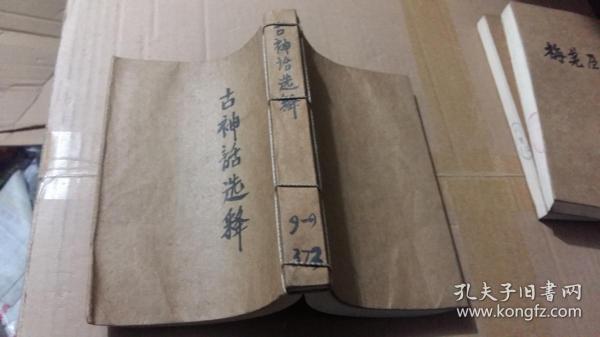 古神话选释
古神話选释
9-9
372
梅尧臣
孔夫子旧书网
www.kongfz.com